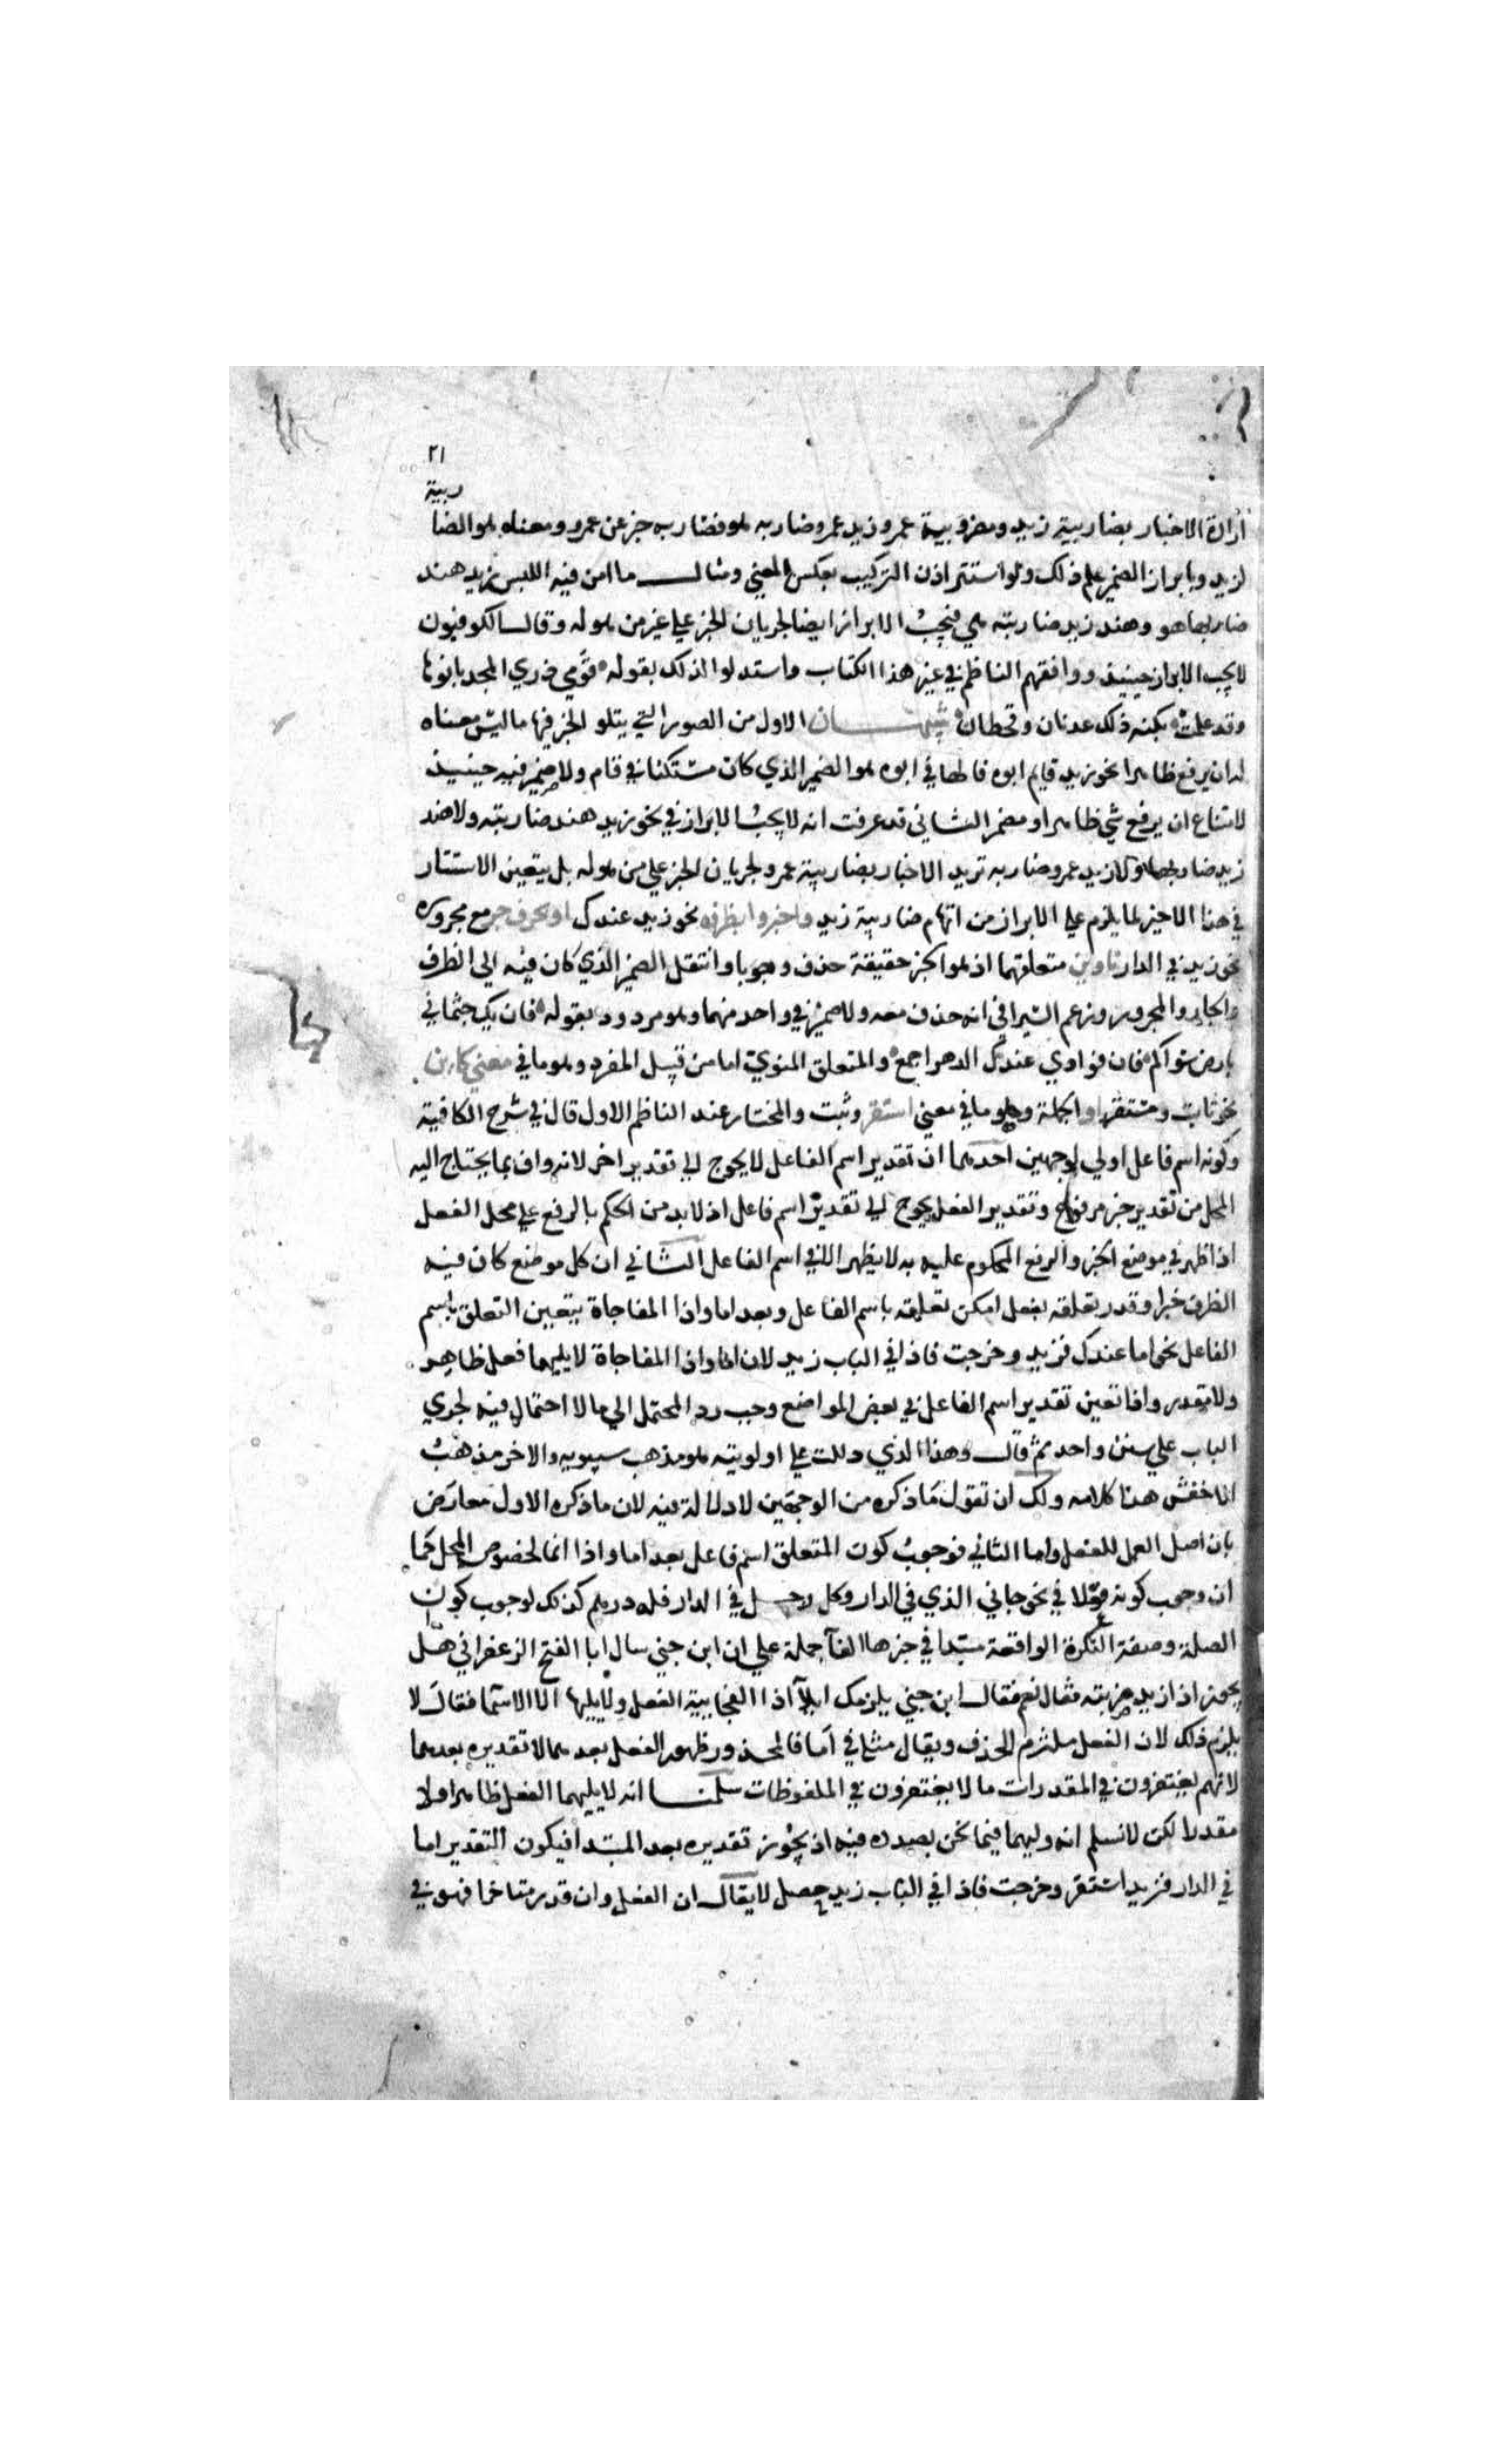 ٢١
ربية
ارادة الاخبار بضاربية زيد ومضروبية عمرو زيد عمرو ضاربه هو فضاربه خبر عن عمرو ومعناه هو الضا
لزيد وبابراز الضمير علم ذلك ولو استتر اذن التركيب بعكس المعني ومثال ما امن فيه اللبس زيد هند
ضاربها هو وهند زيد ضاربته هي فيجب الابراز ايضا لجريان الخبر علي غير من هو له وقال الكوفيون
لا يجب الابراز حينيذ ووافقهم الناظم في غير هذا الكتاب واستدلوا لذلك بقوله قومي ذري المجد بانوها
وقد علمت بكنه ذلك عدنان وقحطان تنبيهان الاول من الصور التي يتلو الخبر فيها ما ليس معناه
له ان يرفع ظاهرا نحو زيد قايم ابوه فالهاء في ابوه هو الضمير الذي كان مستكنا في قام ولا ضمير فيه حينيذ
لامتناع ان يرفع شي ظاهرا ومضمر الثاني قد عرفت انه لا يجب الابراز في نحو زيد هند ضاربته ولا هند
زيد ضاربها ولا زيد عمرو ضاربه تريد الاخبار بضاربية عمرو لجريان الخبر علي من هو له بل يتعين الاستتار
في هذا الاخير لما يلزم علي الابراز من ايهام ضاربية زيد واخبروا بظرف نحو زيد عندك او بحرف جر مع مجروره
نحو زيد في الدار ناوين متعلقهما اذ هو الخبر حقيقة حذف وجوبا وانتقل الضمير الذي كان فيه الي الظرف
والجار والمجرور وزعم السيرافي انه حذف معه ولا ضمير في واحد منهما وهو مردود بقوله فان يك جثماني
بارض سواكم فان فوادي عندك الدهر اجمع والمتعلق المنوي اما من قبيل المفرد وهو ما في معني كاين
نحو ثابت ومستقر او الجملة وهو ما في معني استقر وثبت والمختار عند الناظم الاول قال في شرح الكافية
وكونه اسم فاعل اولي لوجهين احدهما ان تقدير اسم الفاعل لا يحوج الي تقدير اخر لانه واف بما يحتاج اليه
المحل من تقدير خبر مرفوع وتقدير الفعل يحوج الي تقدير اسم فاعل اذ لا بد من الحكم بالرفع علي محل الفعل
اذا ظهر في موضع الخبر والرفع المحكوم عليه به لا يظهر الا في اسم الفاعل الثاني ان كل موضع كان فيه
الظرف خبرا وقدر تعلقه بفعل امكن تعليقه باسم الفاعل وبعد اما واذا المفاجاة يتعين التعلق باسم
الفاعل نحو اما عندك فزيد وخرجت فاذا في الباب زيد لان اما واذا المفاجاة لا يليهما فعل ظاهر
ولا مقدر واذا تعين تقدير اسم الفاعل في بعض المواضع وجب رد المحتمل الي ما لا احتمال فيه لجري
الباب علي سنن واحد ثم قال وهذا الذي دللت علي اولويته هو مذهب سيبويه والاخر مذهب
الاخفش هذا كلامه ولك ان تقول ما ذكره من الوجهين لا دلالة فيه لان ما ذكره الاول معارض
بان اصل العمل للفعل واما الثاني فوجوب كون المتعلق اسم فاعل بعد اما واذا انما لخصوص المحل كما
ان وجوب كونه فعلا في نحو جاني الذي في الدار وكل رجل في الدار فله درهم كذلك لوجوب كون
الصلة وصفة النكرة الواقعة مبتدا في خبرها الفا جملة علي ان ابن جني سال ابا الفتح الزعفراني هل
يجوز اذا زيد ضربته فقال نعم فقال ابن جني يلزمك ايلا اذا الفجايية الفعل ولا يليها الا الاسما فقال لا
يلزم ذلك لان الفعل ملتزم الحذف ويقال مثله في اما فالمحذور ظهور الفعل بعدهما لا تقديره بعدهما
لانهم يغتفرون في المقدرات ما لا يغتفرون في الملفوظات سلمنا انه لا يليهما الفعل ظاهرا ولا
مقدرا لكن لا نسلم انه وليهما فيما نحن بصدده فيه اذ يجوز تقديره بعد المبتدا فيكون التقدير اما
في الدار فزيد استقر وخرجت فاذا في الباب زيد حصل لا يقال ان الفعل وان قدر متاخرا فهو في